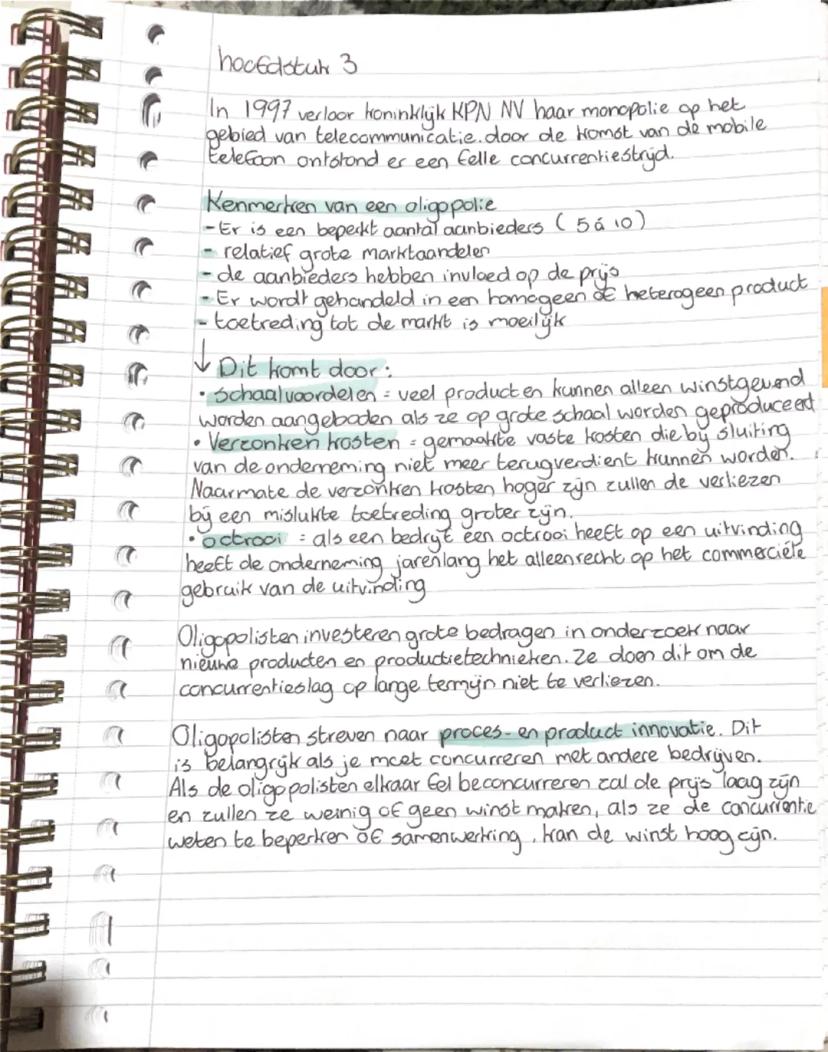 hoofdstuk 3
In 1997 verloor koninklijk KPN NV haar monopolie op het
gebied van telecommunicatie. door de komst van de mobile
telefoon ontstond er een felle concurrentiestrijd.
Kenmerken van een oligopolie
- Er is een beperkt aantal aanbieders ( 5 á 10 )
- relatief grote marktaandelen
- de aanbieders hebben invloed op de prijs
- Er wordt gehandeld in een homogeen of heterogeen product
- toetreding tot de markt is moeilijk
↓ Dit komt door:
• schaalvoordelen = veel producten kunnen alleen winstgevend
worden aangeboden als ze op grote schaal worden geproduceerd
• Verzonken kosten = gemaakte vaste kosten die bij sluiting
van de onderneming niet meer terugverdient kunnen worden.
Naarmate de verzonken kosten hoger zijn zullen de verliezen
bij een mislukte toetreding groter zijn.
• octrooi = als een bedrijf een octrooi heeft op een uitvinding
heeft de onderneming jarenlang het alleenrecht op het commerciële
gebruik van de uitvinding
Oligopolisten investeren grote bedragen in onderzoek naar
nieuwe producten en productietechnieken. Ze doen dit om de
concurrentieslag op lange termijn niet te verliezen.
Oligopolisten streven naar proces- en product innovatie. Dit
is belangrijk als je moet concurreren met andere bedrijven.
Als de oligopolisten elkaar fel beconcurreren zal de prijs laag zijn
en zullen ze weinig of geen winst maken, als ze de concurrentie
weten te beperken óf samenwerking, kan de winst hoog zijn.